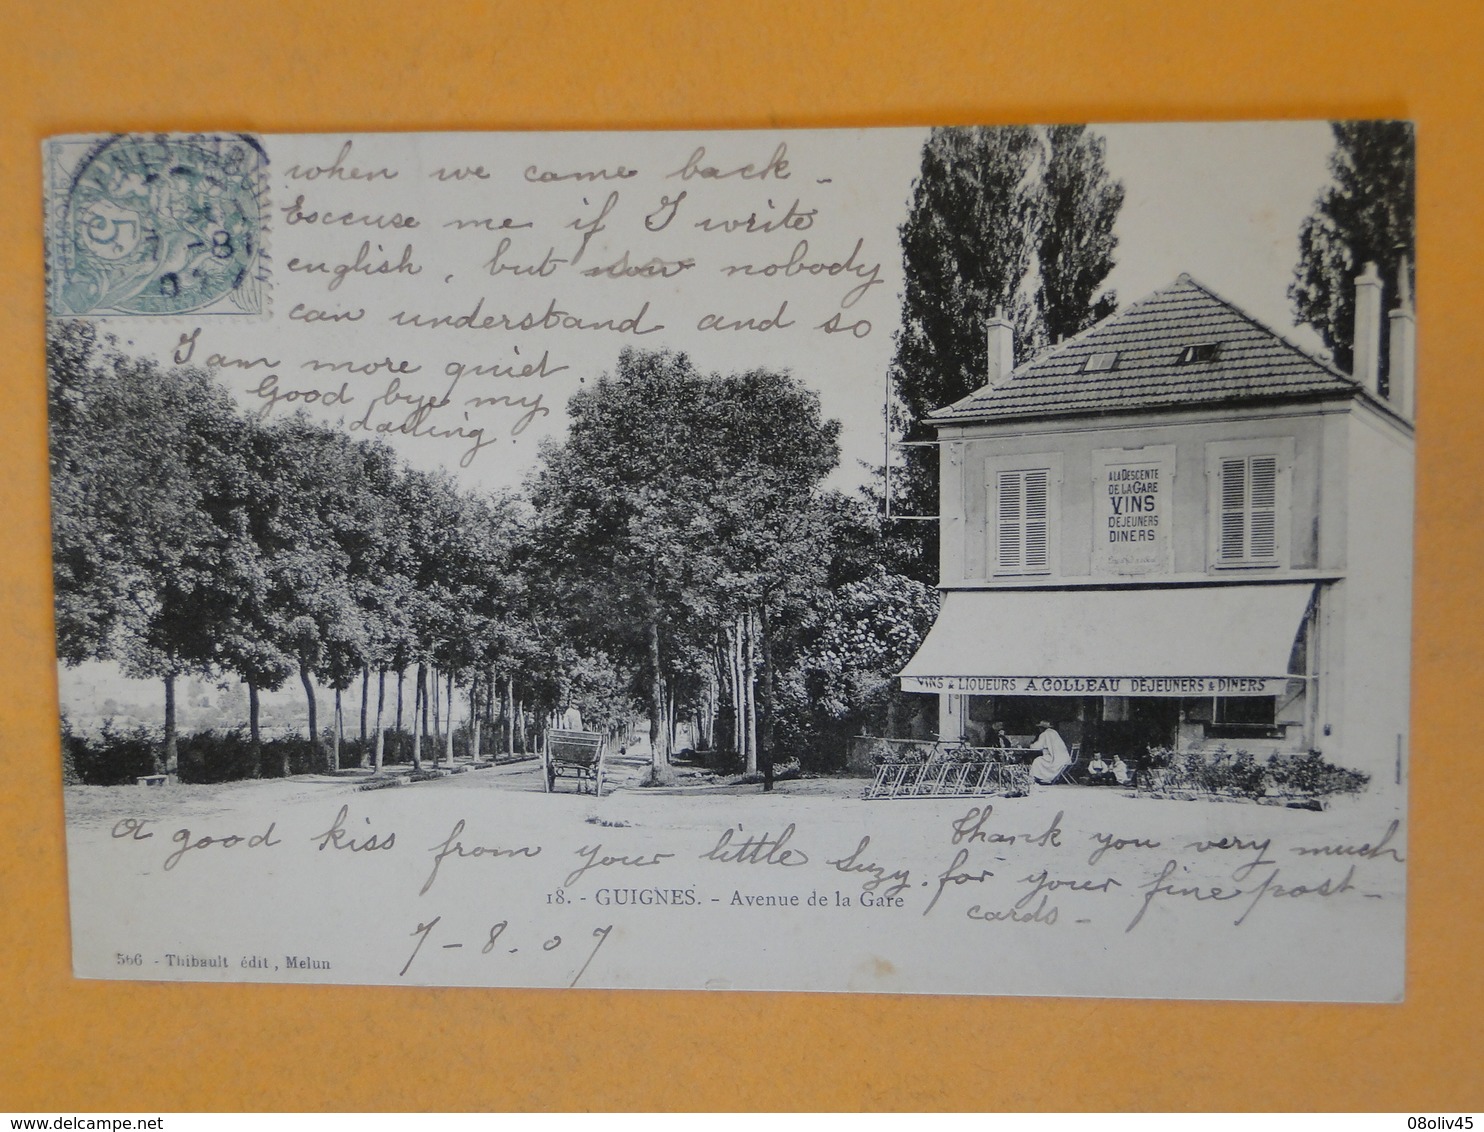 when we came back -
Excuse me if I write
english, but now nobody
can understand and so
I am more quiet.
Good bye my
darling.
5
8
07
A LA DESCENTE
DE LA GARE
VINS
DEJEUNERS
DINERS
VINS & LIQUEURS A. COLLEAU DEJEUNERS & DINERS
A good kiss from your little Suzy.
Thank you very much
for your fine post-
cards -
18. - GUIGNES. - Avenue de la Gare
7-8.07
566 - Thibault édit, Melun
delcampe.net
08oliv45